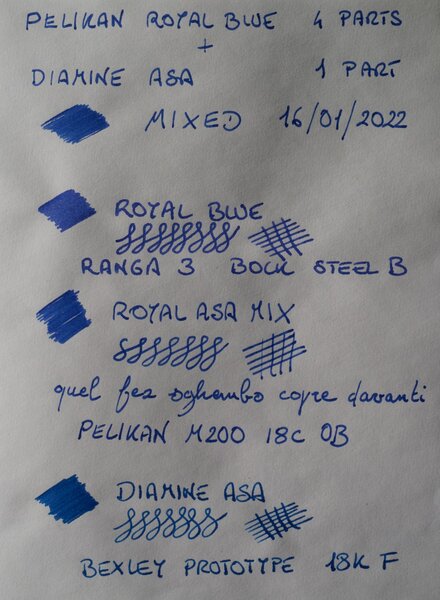 PELIKAN ROYAL BLUE 4 PARTS
+
DIAMINE ASA 1 PART
MIXED 16/01/2022
ROYAL BLUE
RANGA 3 BOCK STEEL B
ROYAL ASA MIX
quel fez sghembo copre davanti
PELIKAN M200 18C OB
DIAMINE ASA
BEXLEY PROTOTYPE 18K F